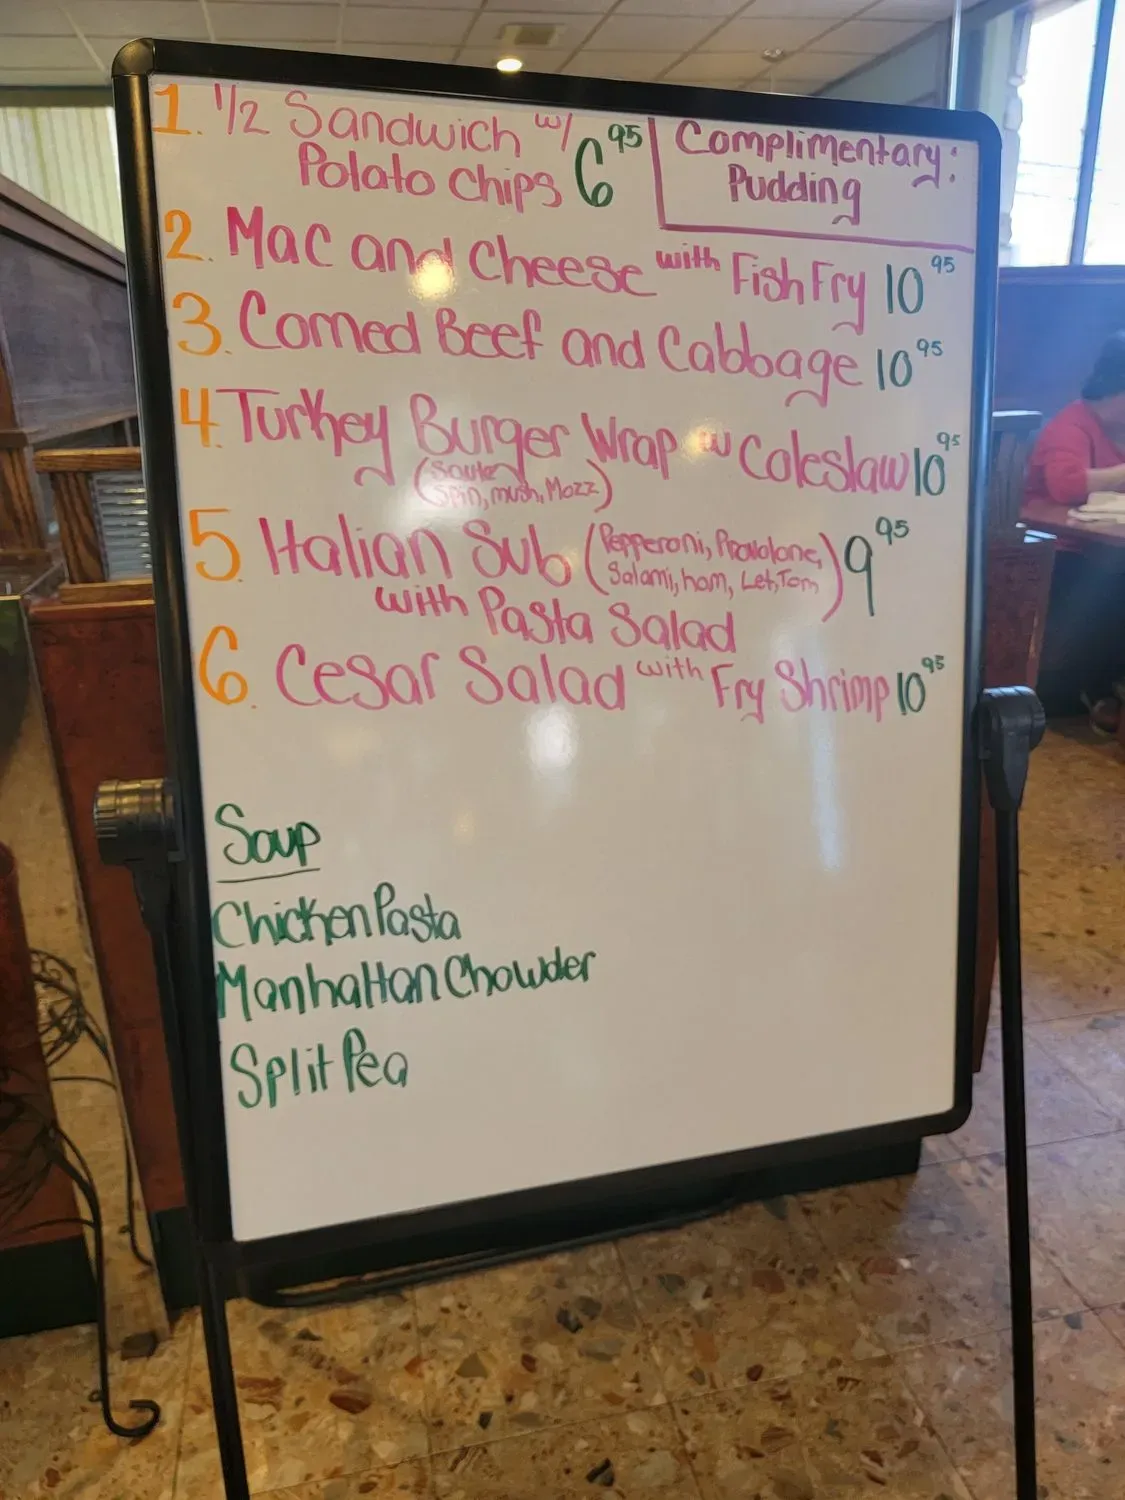 1. 1/2 Sandwich w/ 6 95
Polato chips
Complimentary:
Pudding
2. Mac and Cheese with Fish Fry 10 95
3. Corned Beef and Cabbage 10 95
4. Turkey Burger Wrap w Coleslaw 10 95
(Saute
Spin, mush, Mozz)
5. Italian Sub (Pepperoni, Provolone, 9 95
Salami, ham, Let, Tom)
with Pasta Salad
6. Cesar Salad with Fry Shrimp 10 95
Soup
Chicken Pasta
Manhattan Chowder
Split Pea